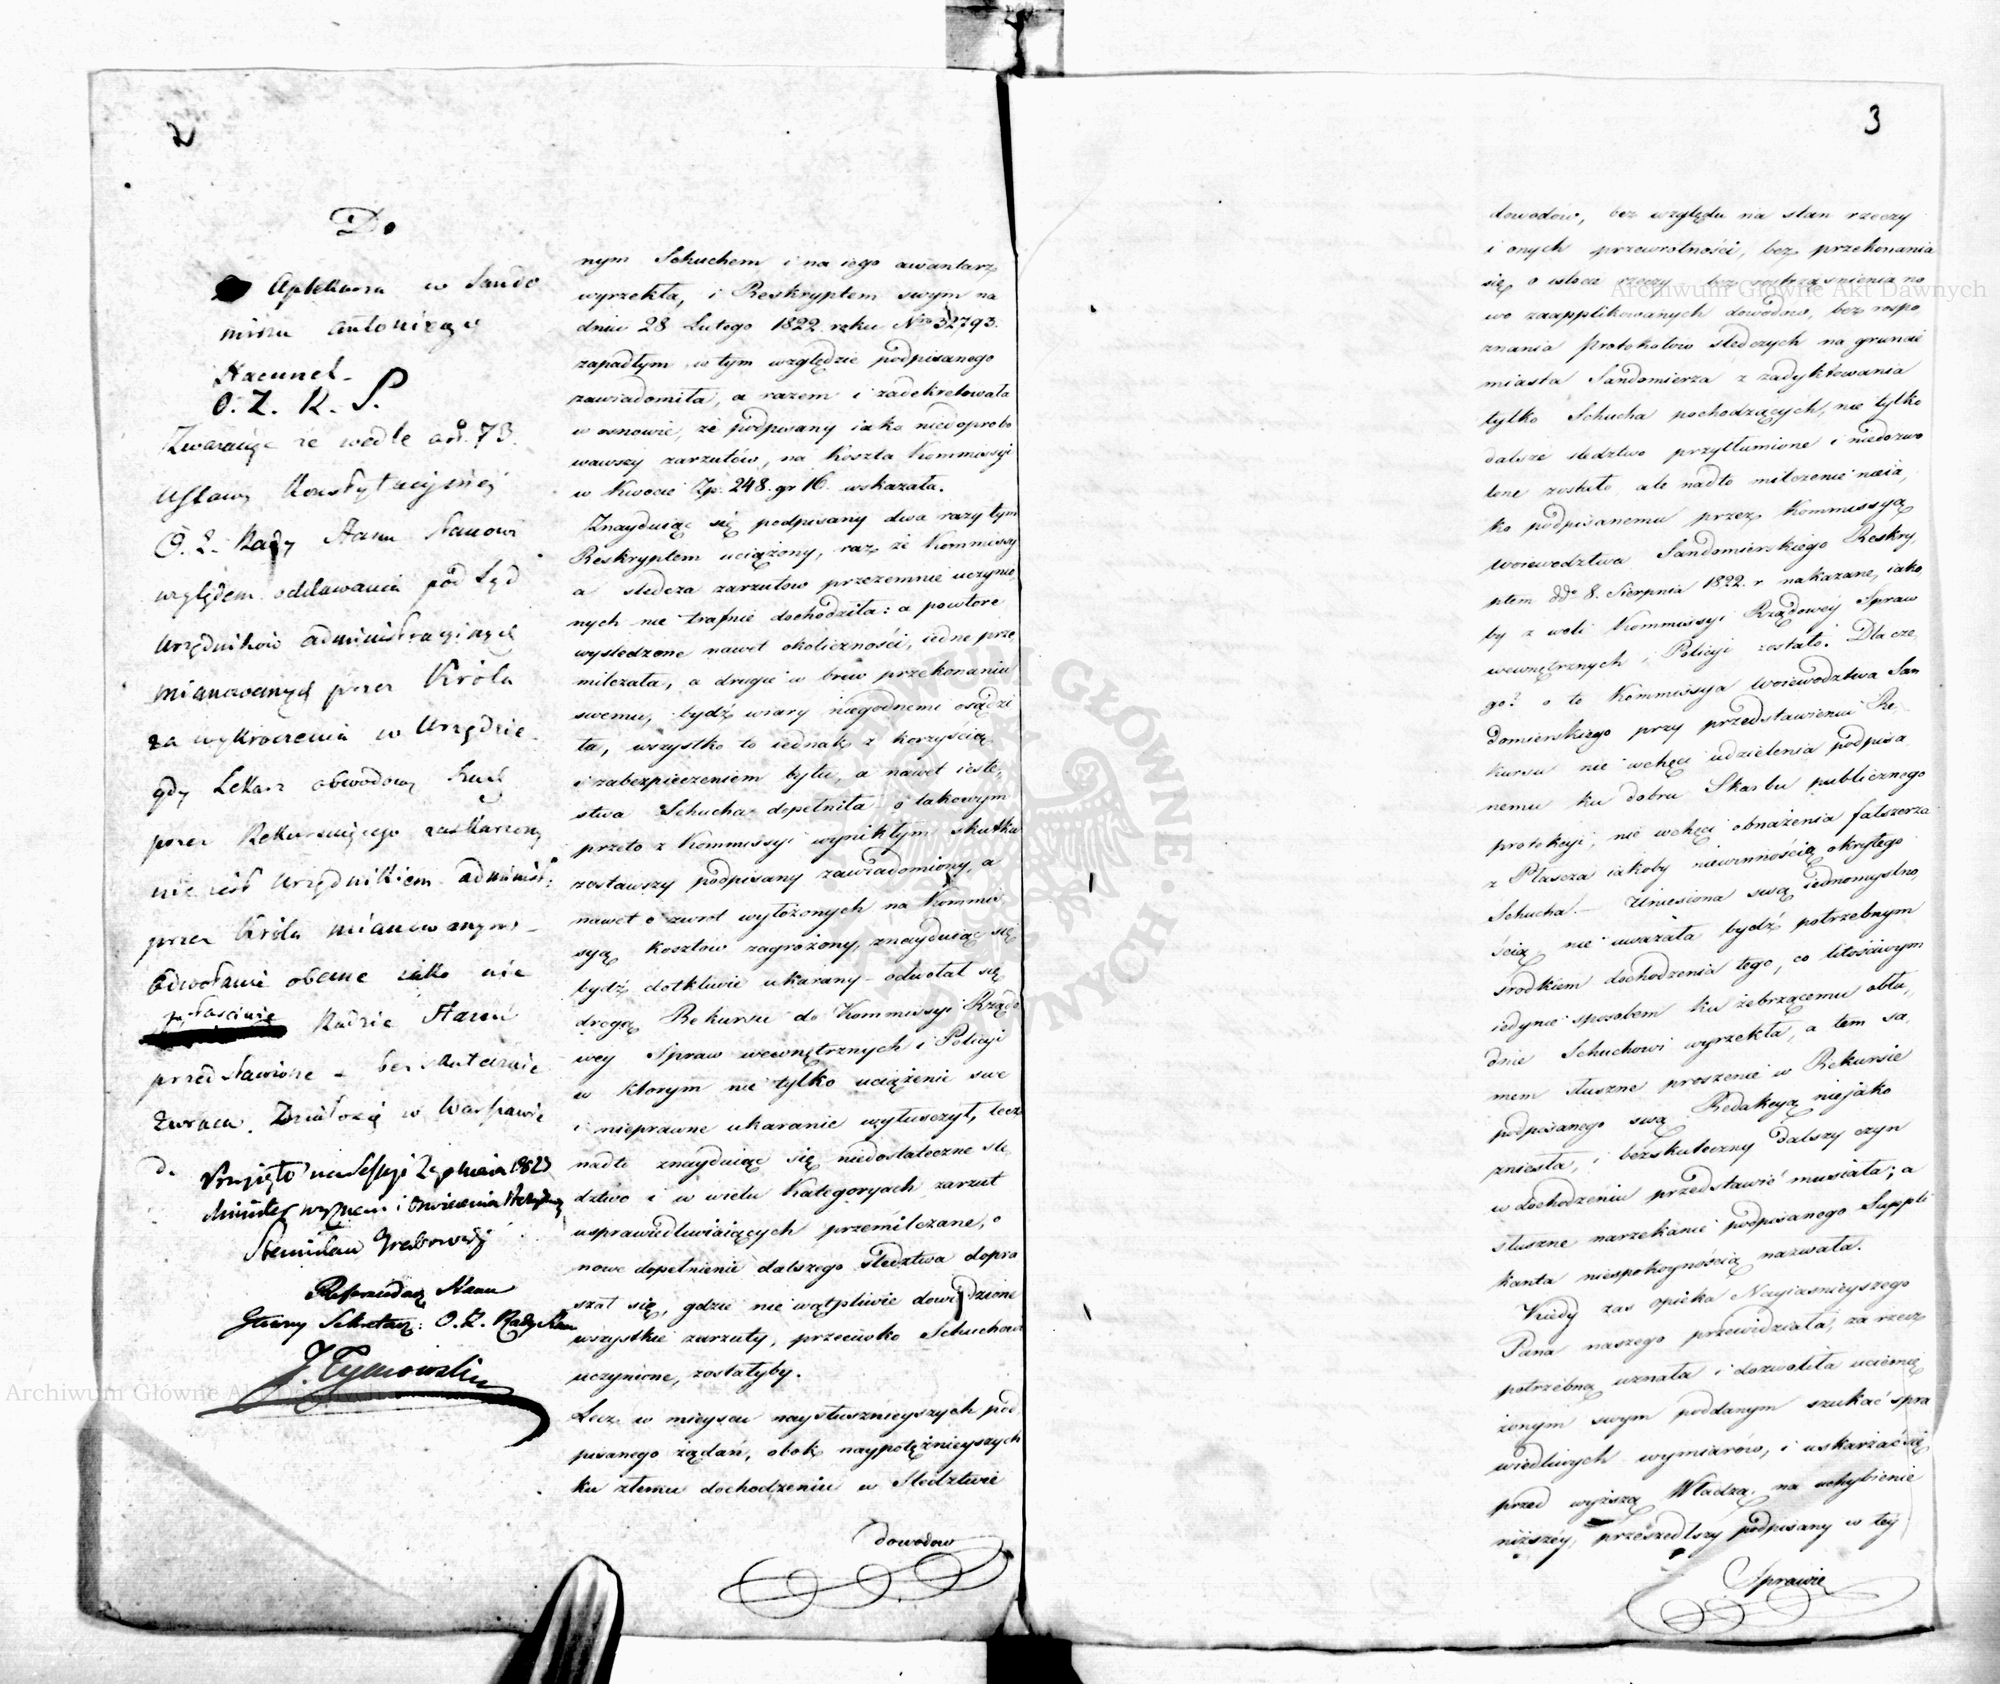 2
Do
Aptekarza w Sando
mirzu Antoniego
O. Z. R. S.
Zważając że wedle art. 73.
Ustawy Konstytucyjnej
O. Z. Rady Stanu stanowi
względem oddawania pod Sąd
Urzędników administracyjnych
mianowanych przez Króla
za wykroczenia w Urzędzie
gdy Lekarz obwodowy Such
przez Rekursującego zaskarżony
nie jest Urzędnikiem administ:
przez Króla mianowanym
Odwołanie obecne jako nie
właściwie
Radzie Stanu
przedstawione – bez skutecznie
zwraca. Działo się w Warszawie
d.
Przyjęto na Sessyi 1823
Minister wyznań i Oświecenia
Stanisław Grabowski
Referendarz Stanu
Główny Sekretarz: O. Z. Rady Stanu
J. Tymowski
nym Schuchem i na iego awantarz
wyrzekła, i Reskryptem swym na
dniu 28 Lutego 1822 roku Nro 32793.
zapadłym w tym względzie podpisanego
zawiadomiła, a razem i zadekretowała
w osnowie, że podpisany iako niedoprobo
wawszy zarzutów, na koszta Kommissyi
w kwocie Zp. 248. gr 16. wskazała.
Znayduiąc się podpisany dwa razy tym
Reskryptem uciążony, raz że Kommissy
a śledcza zarzutów przezemnie uczynio
nych nie trafnie dochodziła: a powtore
wyśledzone nawet okoliczności, iedne prze
milczała, a drugie w brew przekonaniu
swemu, bydź wiary niegodnemi osądzi
ła, wszystko to iednak z korzyścią
i zabezpieczeniem bytu, a nawet ieste,
stwa Schucha dopełniła o takowym
przeto z Kommissyi wynikłym skutku
zostawszy podpisany zawiadomiony, a
nawet o zwrot wyłożonych na Kommis
syą kosztów zagrożony, znayduiąc się
bydź dotkliwie ukarany – odwołał się
drogą Rekursu do Kommissyi Rządo
wey Spraw wewnętrznych i Policyi
w którym nie tylko uciążenie swe
i nieprawne ukaranie wyłuszczył, lecz
nadto znayduiąc się niedostateczne śle
dztwo i w wielu kategoryach zarzut
usprawiedliwiaiących przemilczane, o
nowe dopełnienie dalszego śledztwa dopra
szał się, gdzie nie wątpliwie dowiedzione
wszystkie zarzuty, przeciwko Schuchowi
uczynione, zostałyby.
Lecz w mieyscu naysłusznieyszych pod
pisanego żądań, obok naypotężnieyszych
ku złemu dochodzeniu w Śledztwie
dowodow
3
dowodów, bez względu na stan rzeczy
i onych przewrotności, bez przekonania
się o istocie rzeczy bez roztrząśnienia no
wo zaapplikowanych dowodów, bez rospo
znania protokołów śledczych na gruncie
miasta Sandomierza z zadyktowania
tylko Schucha pochodzących, nie tylko
dalsze śledztwo przytłumione i niedozwo
lone zostało ale nadto milczenie naia,
ko podpisanemu przez Kommissyą
Woiewodztwa Sandomierskiego Reskry,
ptem dd° 8. Sierpnia 1822. r nakazane, iako,
by z woli Kommissyi Rządowey Spraw
wewnętrznych i Policyi zostało. Dla cze,
go? o to Kommissya Woiewodztwa San
domierskiego przy przedstawieniu Re,
kursu nie w chęci udzielenia podpisa
nemu ku dobru Skarbu publicznego
protekcyi, nie w chęci obnażenia fałszerza
z Płaszcza iakoby niewinnością okrytego
Schucha. – Uniesiona swą iednomyślno,
ścią nie uważała bydź potrzebnym
środkiem dochodzenia tego, co litościwym
iedynie sposobem ku żebrzącemu obłu,
dnie Schuchowi wyrzekła, a tem sa,
mem słuszne proszenie w Rekursie
podpisanego swą Redakcyą niejako
zniosła, i bezskuteczny dalszy czyn
w dochodzeniu przedstawić musiała; a
słuszne narzekanie podpisanego Suppli
kanta niespokoynością nazwała.
Kiedy zas opieka Nayiaśnieyszego
Pana naszego przewidziała, za rzecz
potrzebną uznała i dozwoliła uciemię
żonym swym poddanym szukać spra
wiedliwych wymiarów, i uskarżać się
przed wyższą Władzą, na uchybienie
niższéy, przeszedłszy podpisany w tej
Sprawie
Archiwum Główne Akt Dawnych
Archiwum Główne Akt Dawnych
ARCHIWUM GŁÓWNE AKT DAWNYCH